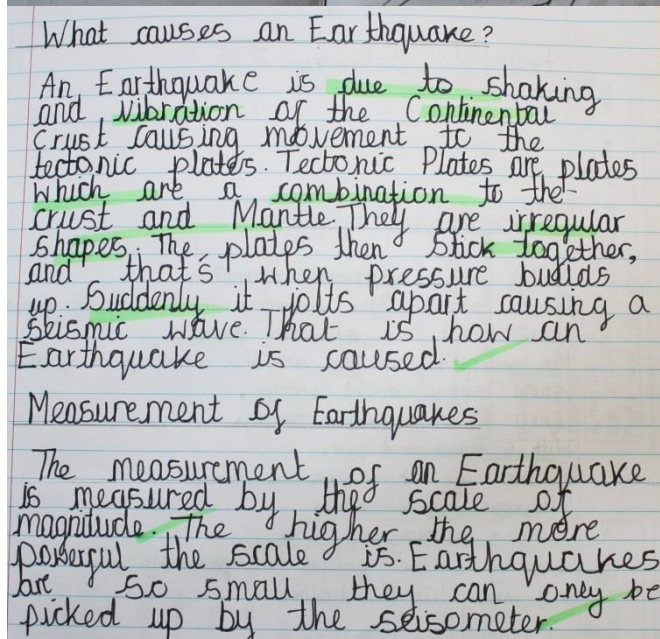 What causes an Earthquake?
An Earthquake is due to shaking
and vibration of the Continental
crust causing movement to the
tectonic plates. Tectonic Plates are plates
which are a combination to the
crust and Mantle. They are irregular
shapes. The plates then stick together,
and that's when pressure builds
up. Suddenly it jolts apart causing a
seismic wave. That is how an
Earthquake is caused.
Measurement of Earthquakes
The measurement of an Earthquake
is measured by the scale of
magnitude. The higher the more
powerful the scale is. Earthquakes
are so small they can only be
picked up by the seisometer.